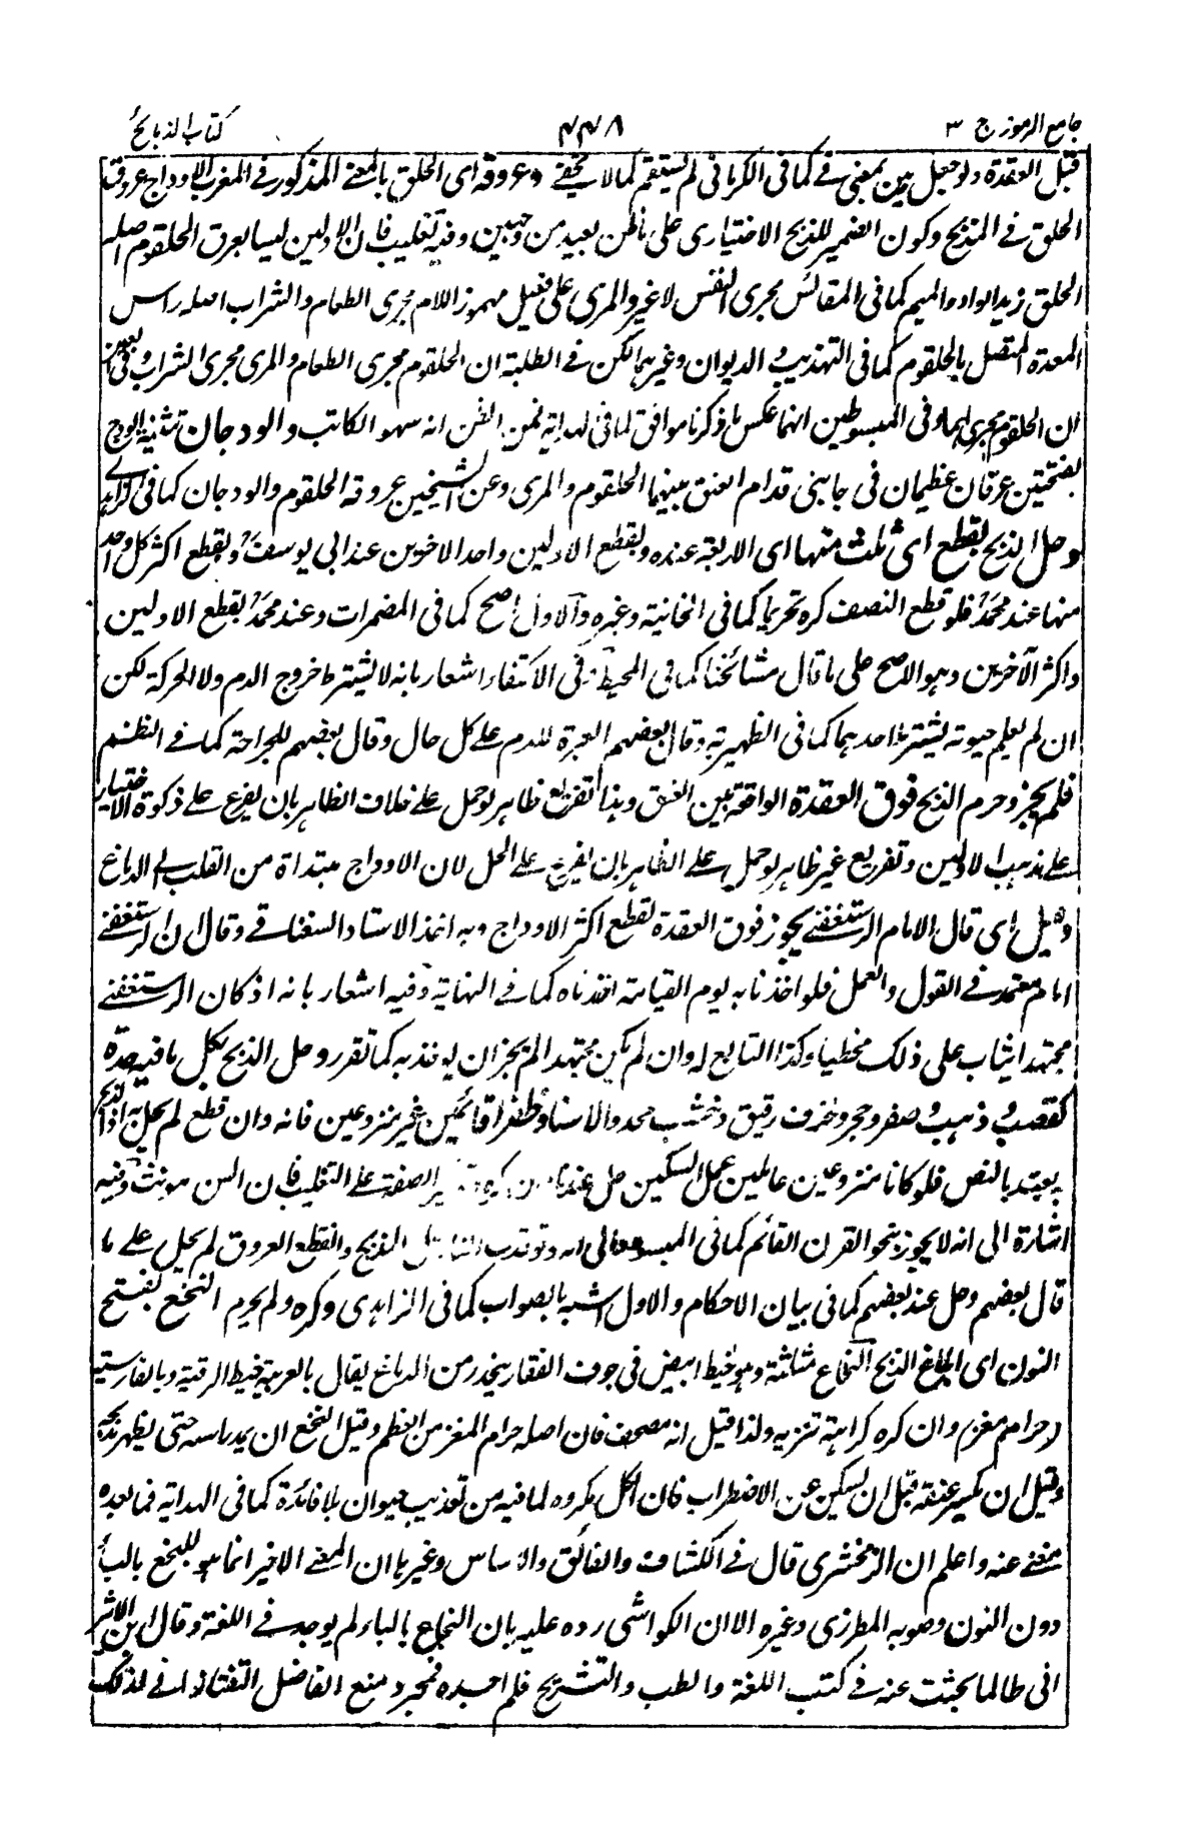 جامع الرموز ج ٣
٤٤٨
كتاب الذبائح
قبل العقدة ولو جعل بين بمعنى في كما في الكرماني لم يستقم كما لا يخفى وعروقه اى الحلق بالمعنى المذكور في المغرب الاوداج عروق
الحلق في المذبح وكون الضمير للذبح الاختيارى على ما ظن بعيد من وجهين وفيه تغليب فان الاولين ليسا بعرق الحلقوم اصله
الحلق زيد الواو والميم كما فى المقائس مجرى النفس لا غير والمرى على فعيل مهموز اللام مجرى الطعام والشراب اصله راس
المعدة المتصل بالحلقوم كما فى التهذيب والديوان وغيرهما لكن في الطلبة ان الحلقوم مجرى الطعام والمرى مجرى الشراب وفى العين
ان الحلقوم مجراهما وفى المبسوطين انهما عكس ما ذكرنا موافق لما فى الهداية فمن الظن انه سهو الكاتب والودجان تثنية الودج
بفتحتين عرقان عظيمان فى جانبى قدام العنق بينهما الحلقوم والمرى وعن الشيخين عروقه الحلقوم والودجان كما فى الزاهدى
وحل الذبح بقطع اى ثلث منها اى الاربعة عنده وبقطع الاولين واحد الاخرين عند ابى يوسف وبقطع اكثر كل واحد
منها عند محمد فلو قطع النصف كره تحريما كما فى الخانية وغيره والاول اصح كما فى المضمرات وعند محمد بقطع الاولين
واكثر الآخرين وهو الاصح على ما قال مشائخنا كما فى المحيط وفى الاكتفاء اشعار بانه لا يشترط خروج الدم ولا الحركة لكن
ان لم يعلم حيوته يشترط احدهما كما فى الظهيرية وقال بعضهم العبرة للدم على كل حال وقال بعضهم للجراحة كما في النظم
فلم يجز وحرم الذبح فوق العقدة الواقعة بين العنق وهذا تفريع ظاهر لو حمل على خلاف الظاهر بان يفرع على ذكوة الاختيار
على مذهب الاولين وتفريع غير ظاهر لو حمل على الظاهر بان يفرع على الحل لان الاوداج مبتداة من القلب الى الدماغ
وقيل اى قال الامام الرستغفنى يجوز فوق العقدة لقطع اكثر الاوداج وبه اخذ الاستاد السغناقى وقال ان الرستغفنى
امام معتمد في القول والعمل فلو اخذنا به يوم القيامة اخذناه كما في النهاية وفيه اشعار بانه اذ كان الرستغفنى
مجتهدا يثاب على ذلك مخطيا وكذا التابع له وان لم يكن مجتهدا لم يجز ان يوخذ به كما تقرر وحل الذبح بكل ما فيه حدة
كقصب وذهب وصفر وحجر وخزف رقيق وخشب محدد الا سنا وظفرا قائمين غير منزوعين فانه وان قطع لم يحل به اذا الذبح
يعتد بالنص فلو كانا منزوعين عاملين عمل السكين حل عندنا الصفة على التغليب فان السن مونث وفيه
اشارة الى انه لا يجوز بنحو القرن القائم كما فى المبسوط الذبح وانقطع العروق لم يحل على ما
قال بعضهم وحل عند بعضهم كما فى بيان الاحكام والاول اشبه بالصواب كما فى الزاهدى وكره ولم يحرم النخع بفتح
النون اى ابلاغ الذبح النخاع مثلثة وهو خيط ابيض فى جوف الفقار ينحدر من الدماغ يقال بالعربية خيط الرقبة وبالفارسية
(حرام مغز) وان كره كراهة تنزيه ولذا قيل انه مصحف فان اصله حرام المغز من العظم وقيل النخع ان يمد راسه حتى يظهر مذبحه
وقيل ان يكسر عنقه قبل ان يسكن عن الاضطراب فان الكل مكروه لما فيه من تعذيب حيوان بلا فائدة كما فى الهداية فما بعده
مغنى عنه واعلم ان الزمخشرى قال في الكشاف والفائق والاساس وغيرها ان المعنى الاخير انما هو للبخع بالباء
دون النون وصوبه المطرزى وغيره الا ان الكواشى رده عليه بان البخاع بالباء لم يوجد في اللغة وقال ابن الاثير
انى طالما بحثت عنه في كتب اللغة والطب والتشريح فلم اجده فمجرد منع الفاضل التفتازانى لذلك